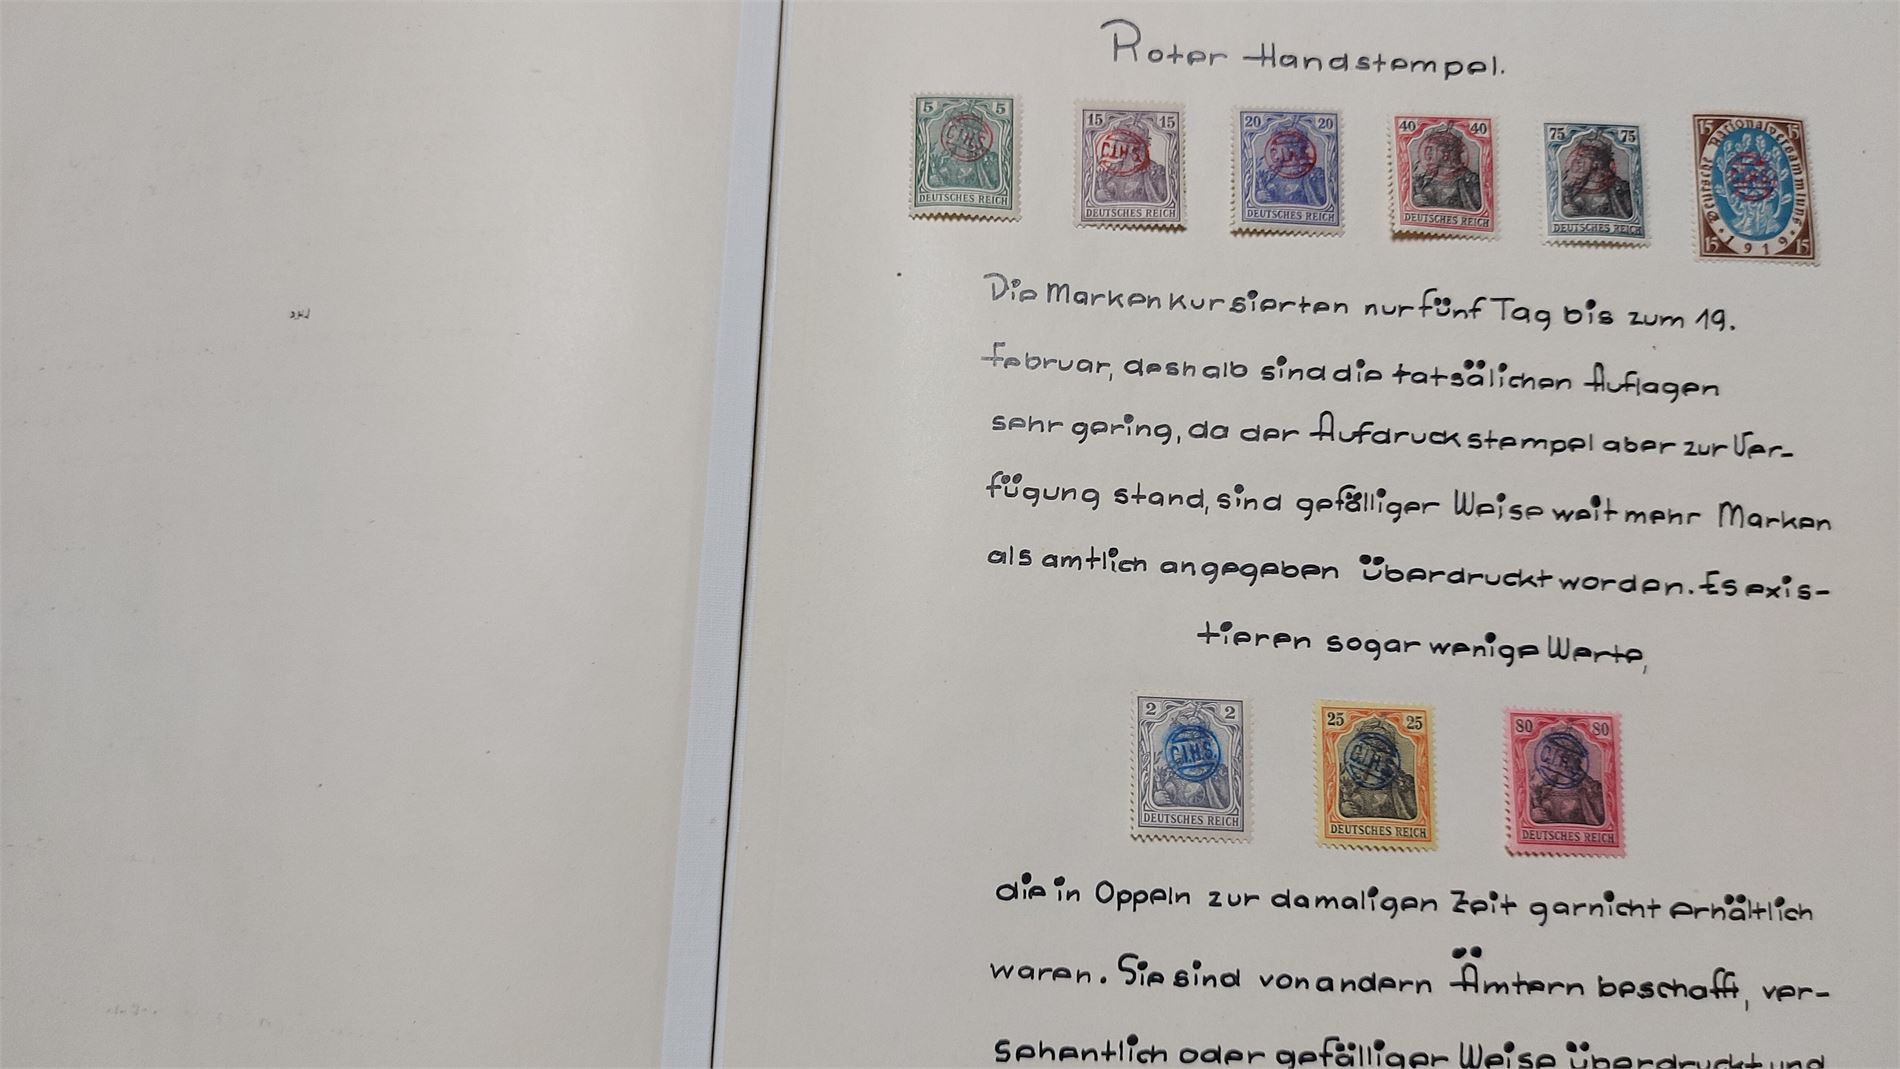 Roter Handstempel.
5 5
C.I.H.S.
DEUTSCHES REICH
15 15
C.I.H.S.
DEUTSCHES REICH
20 20
C.I.H.S.
DEUTSCHES REICH
40 40
DEUTSCHES REICH
75 75
DEUTSCHES REICH
15 15
Deutsche Nationalversammlung
1919
15 15
Die Marken kursierten nur fünf Tag bis zum 19.
Februar, deshalb sind die tatsälichen Auflagen
sehr gering, da der Aufdruckstempel aber zur Ver-
fügung stand, sind gefälliger Weise weit mehr Marken
als amtlich angegeben überdruckt worden. Es exis-
tieren sogar wenige Werte,
2 2
C.I.H.S.
DEUTSCHES REICH
25 25
C.I.H.S.
DEUTSCHES REICH
80 80
C.I.H.S.
DEUTSCHES REICH
die in Oppeln zur damaligen Zeit garnicht erhältlich
waren. Sie sind von andern Ämtern beschafft, ver-
sehentlich oder gefälliger Weise überdruckt und